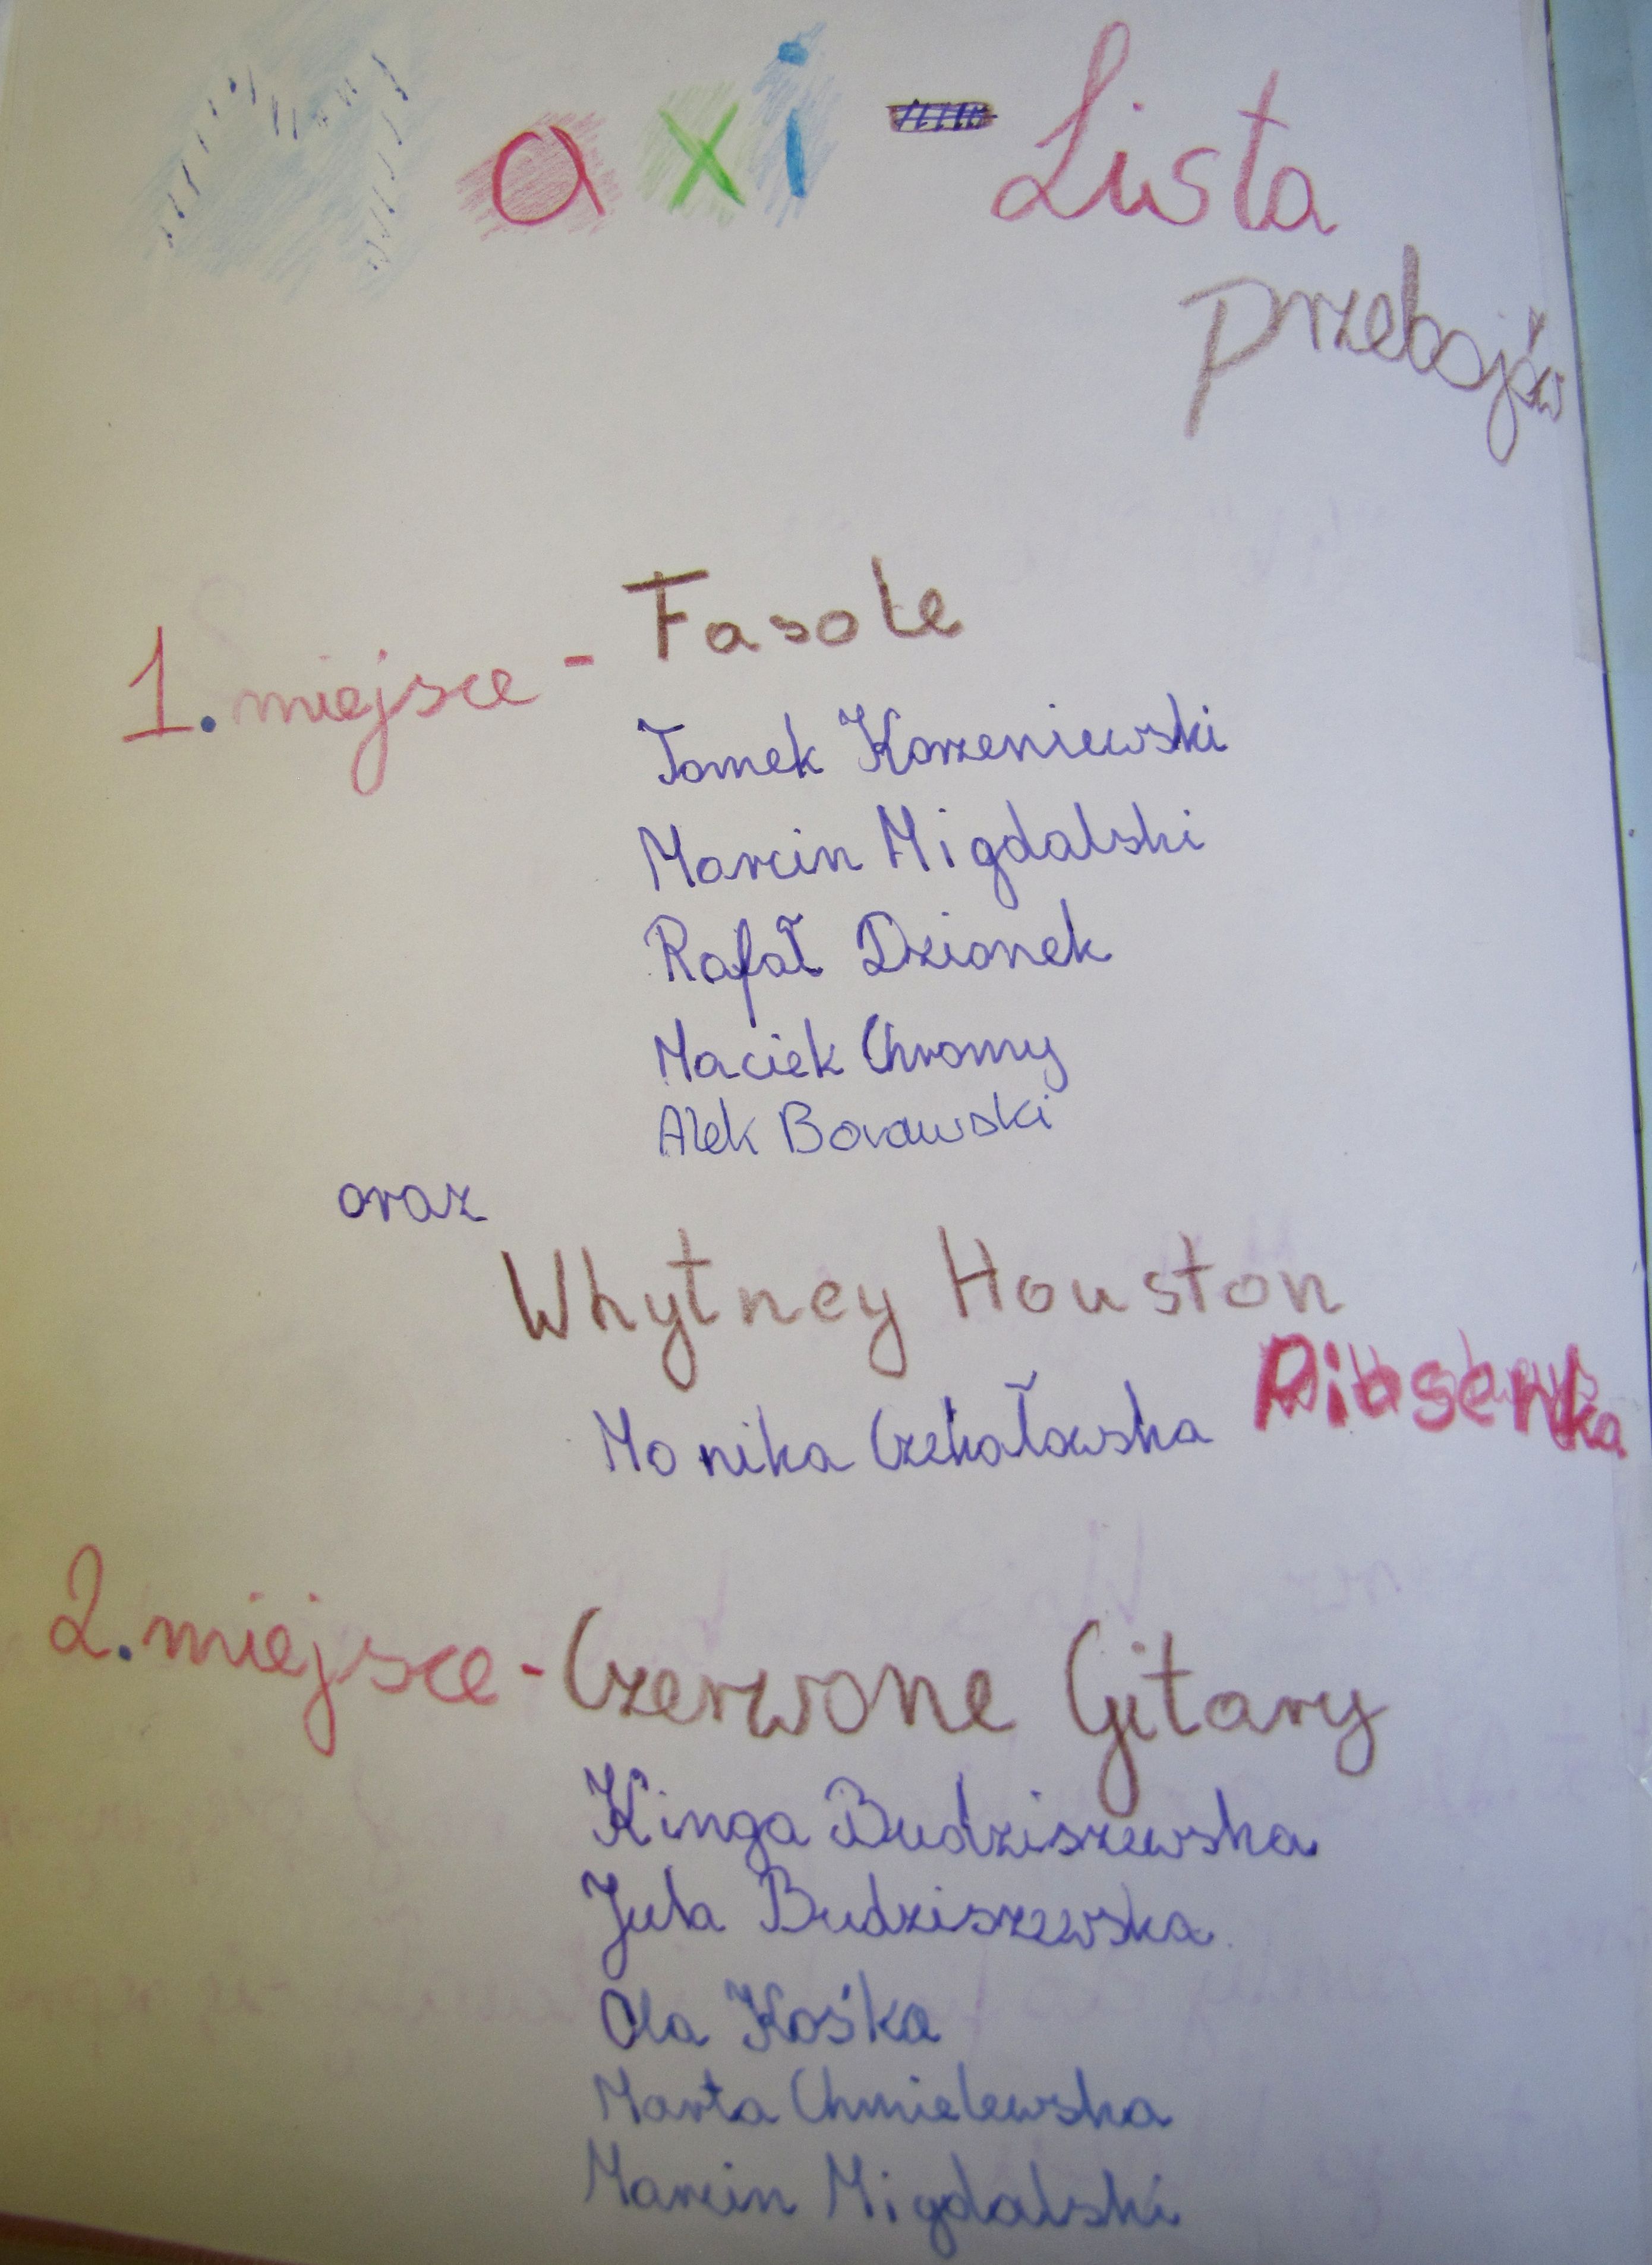 Maxi - Lista
Przebojów
1. miejsce - Fasole
Tomek Korzeniewski
Marcin Migdalski
Rafał Dzionek
Maciek Chromy
Alek Borawski
oraz
Whytney Houston
Monika Czekałowska
2. miejsce - Czerwone Gitary
Kinga Budziszewska
Jula Budziszewska
Ola Kośka
Marta Chmielewska
Marcin Migdalski